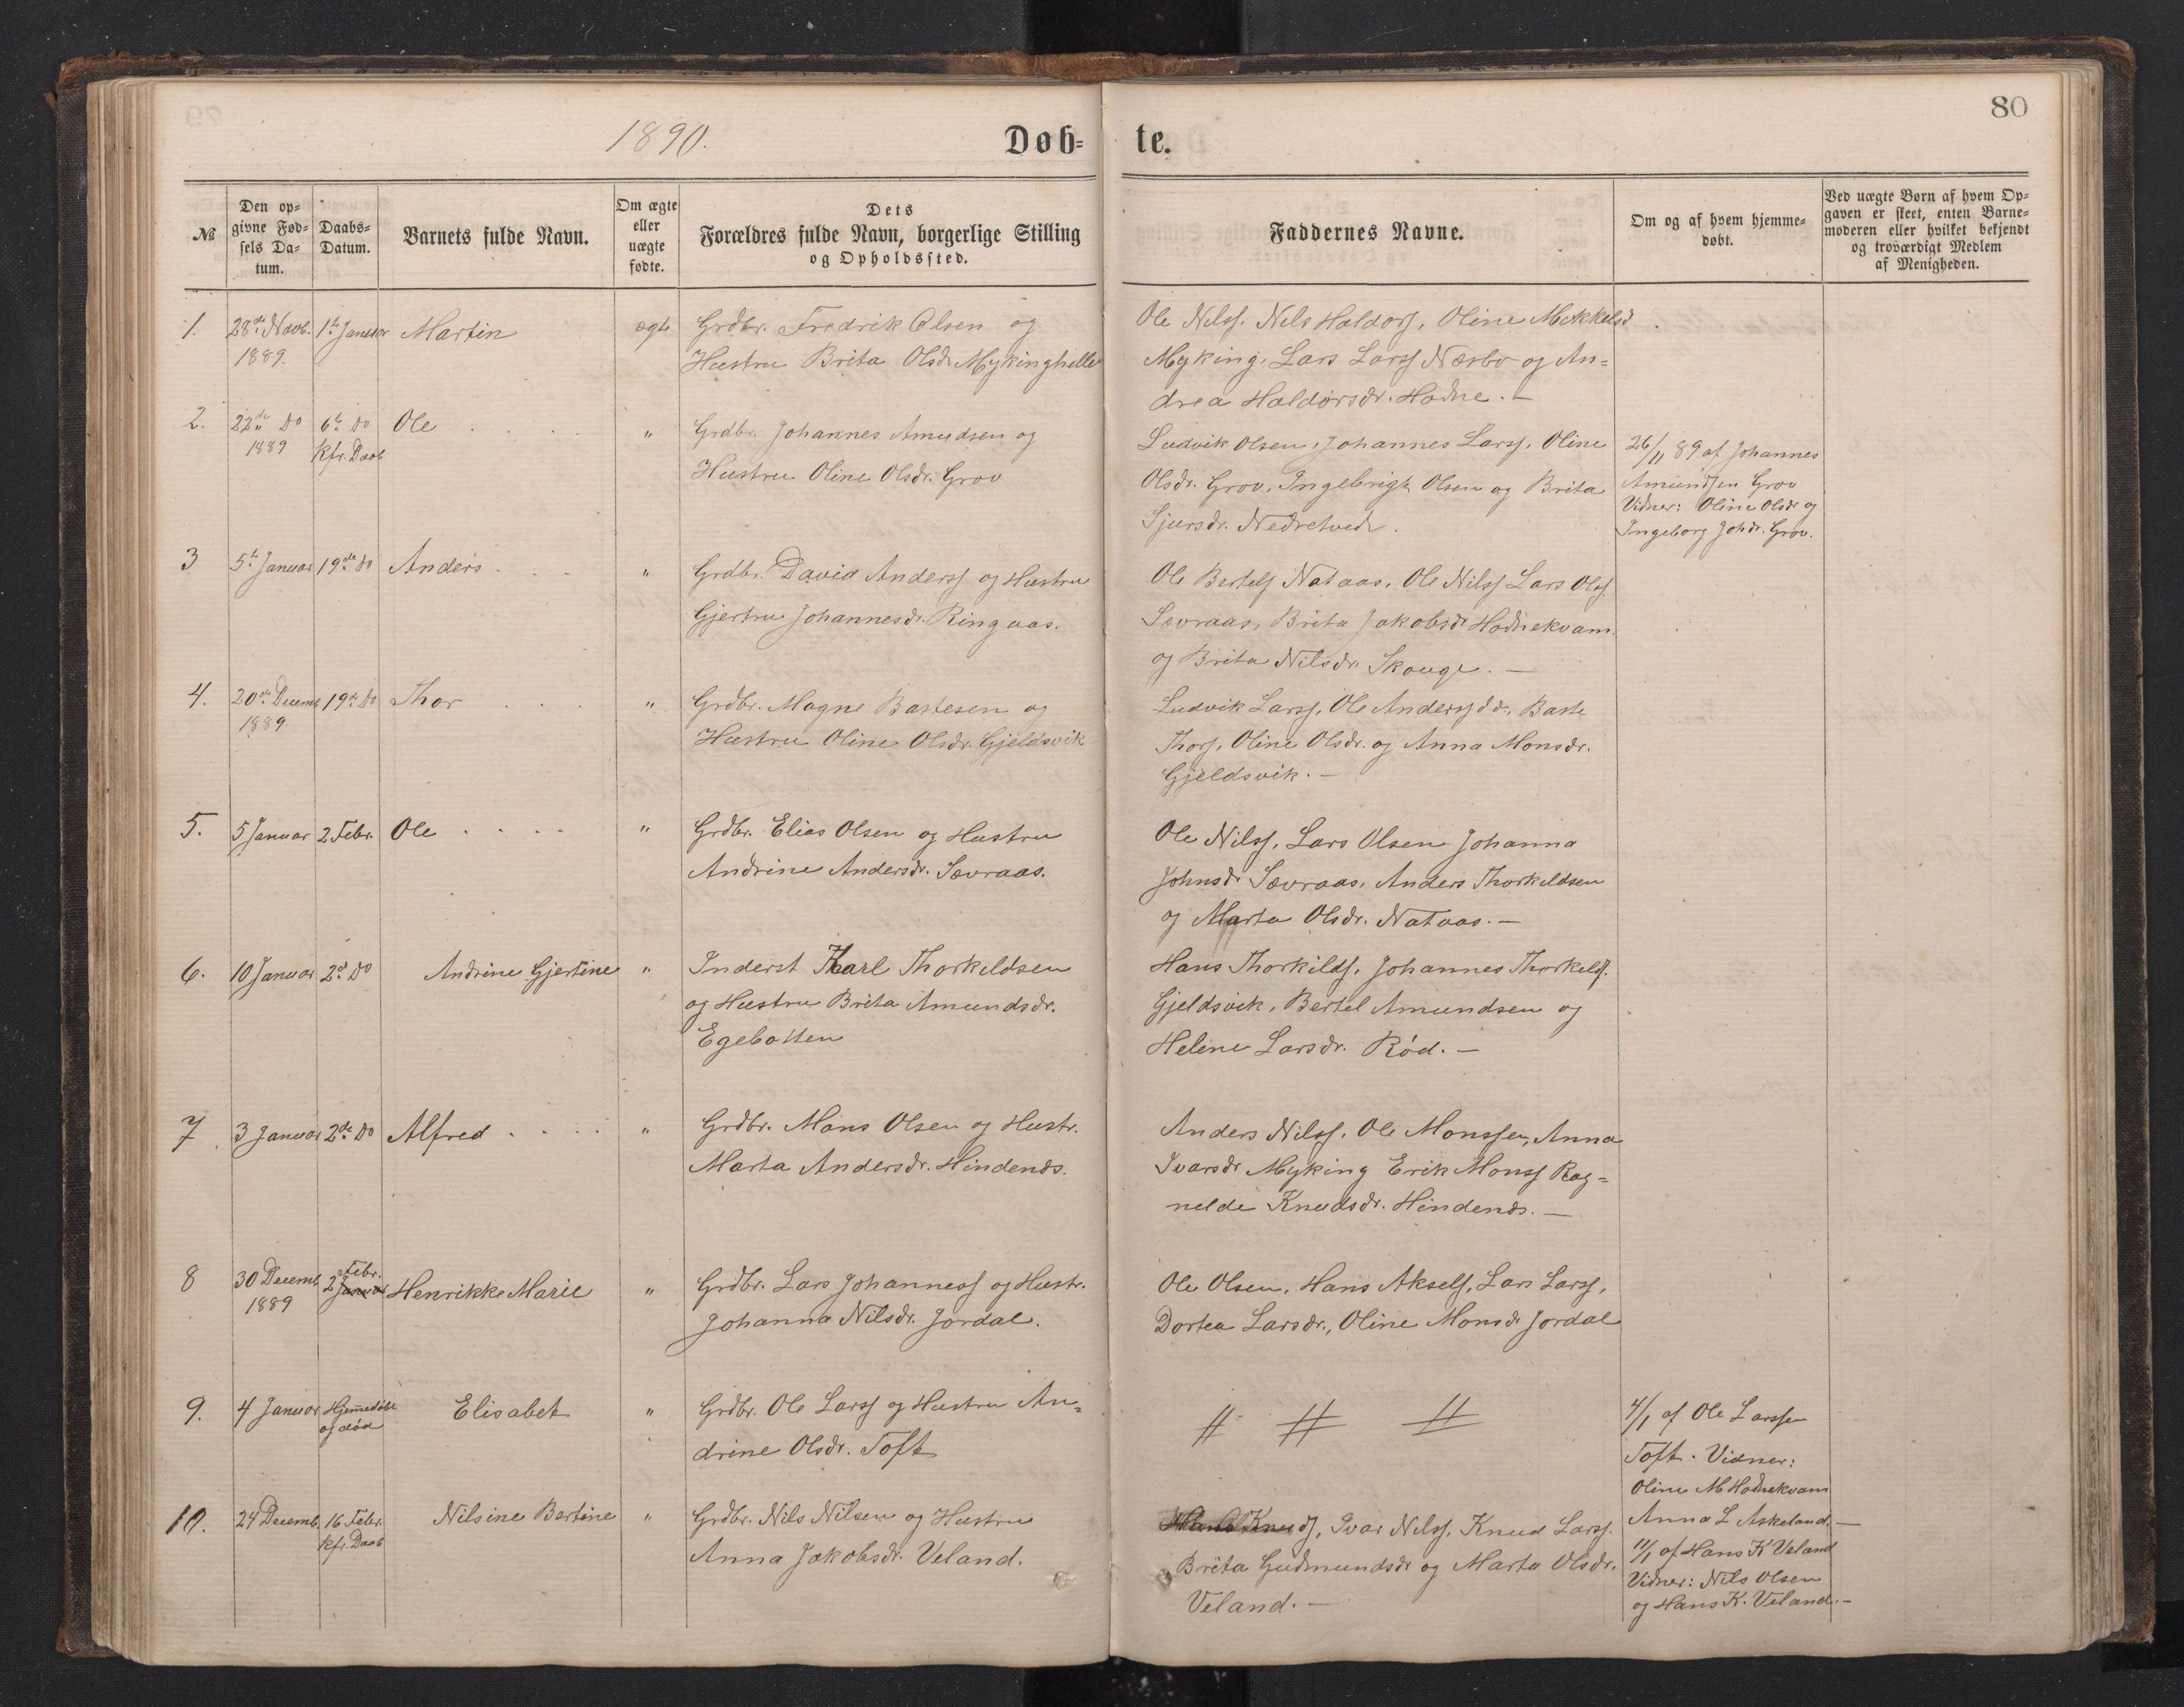 80
1890.
Døb-
te.
№
Den op-
givne Fød-
sels Da-
tum.
Daabs-
Datum.
Barnets fulde Navn.
Om ægte
eller
uægte
fødte.
Dets
Forældres fulde Navn, borgerlige Stilling
og Opholdssted.
Faddernes Navne.
Om og af hvem hjemme-
døbt.
Ved uægte Børn af hvem Op-
gaven er skeet, enten Barne-
moderen eller hvilket bekjendt
og troværdigt Medlem
af Menigheden.
1.
28de Novb.
1889.
1te Januar
Martin
ægte
Grdbr. Fredrik Olsen og
Hustru Brita Olsdr. Mykinghelle
Ole Nilss. Nils Haldorss, Oline Mekkelsd
Myking, Lars Larss Næsbø og An-
drea Haldorsdr. Hodne. —
2.
22de Do
1889
6te Do
kfr. Daab
Ole
"
Grdbr. Johannes Amudsen og
Hustru Oline Olsdr. Grov
Ludvik Olsen, Johannes Larss, Oline
Olsdr. Grov, Ingebrigt Olsen og Brita
Sjursdr. Nedretvedt.
26/11 89 af Johannes
Amundsen Grov
Vidner: Oline Olsdr og
Ingeborg Johdr. Grov.
3
5te Januar
19de Do
Anders
"
Grdbr. David Anderss og Hustru
Gjertru Johannesdr. Ringaas.
Ole Bertels Nataas, Ole Nilss Lars Olss
Sævraas, Brita Jakobsdr Hodnekvam
og Brita Nilsdr. Skauge. —
4.
20de Decemb.
1889.
19de Do
Thor
"
Grdbr. Magne Bastesen og
Hustru Oline Olsdr. Gjeldsvik
Ludvik Larss, Ole Anderss do., Baste
Thors, Oline Olsdr. og Anna Monsdr.
Gjeldsvik. —
5.
5 Januar
2 Febr.
Ole
"
Grdbr. Elias Olsen og Hustru
Andrine Andersdr. Sævraas.
Ole Nilss, Lars Olsen Johanna
Johnsdr Sævraas, Anders Thorkildsen
og Marta Olsdr. Nataas. —
6.
10 Januar
2d Do
Andrine Gjertine
"
Inderst Karl Thorkildsen
og Hustru Brita Amundsdr.
Egebotten
Hans Thorkilds, Johannes Thorkelss.
Gjeldsvik, Bertel Amundsen og
Helene Larsdr. Rød. —
7
3 Januar
2de Do
Alfred
"
Grdbr. Mons Olsen og Hustr.
Marta Andersdr. Hindenæs.
Anders Nilss, Ole Monssen, Anna
Ivarsdr Myking Erik Monss Rag-
nelde Knudsdr. Hindenæs. —
8
30 Decemb.
1889
2 Febr.
Januar
Henrikke Marie
"
Grdbr. Lars Johanness og Hustr.
Johanna Nilsdr. Jordal.
Ole Olsen, Hans Aksels, Lars Larss,
Dortea Larsdr., Oline Monsdr Jordal
9.
4 Januar
Hjemmedøbt
og død
Elisabet
"
Grdbr. Ole Larss og Hustru An-
drine Olsdr. Toft
4/1 af Ole Larssen
Toft. Vidner:
Oline M Hodnekvam
Anna L Askeland. —
10.
24 Decemb.
16 Febr.
kfr. Daab
Nilsine Bertine
"
Grdbr. Nils Nilsen og Hustru
Anna Jakobsdr. Veland.
Hans Knuds, Ivar Nilss, Knud Larss.
Brita Gudmundsdr og Marta Olsdr.
Veland. —
11/1 af Hans K Veland
Vidner: Nils Olsen
og Hans K. Veland. —